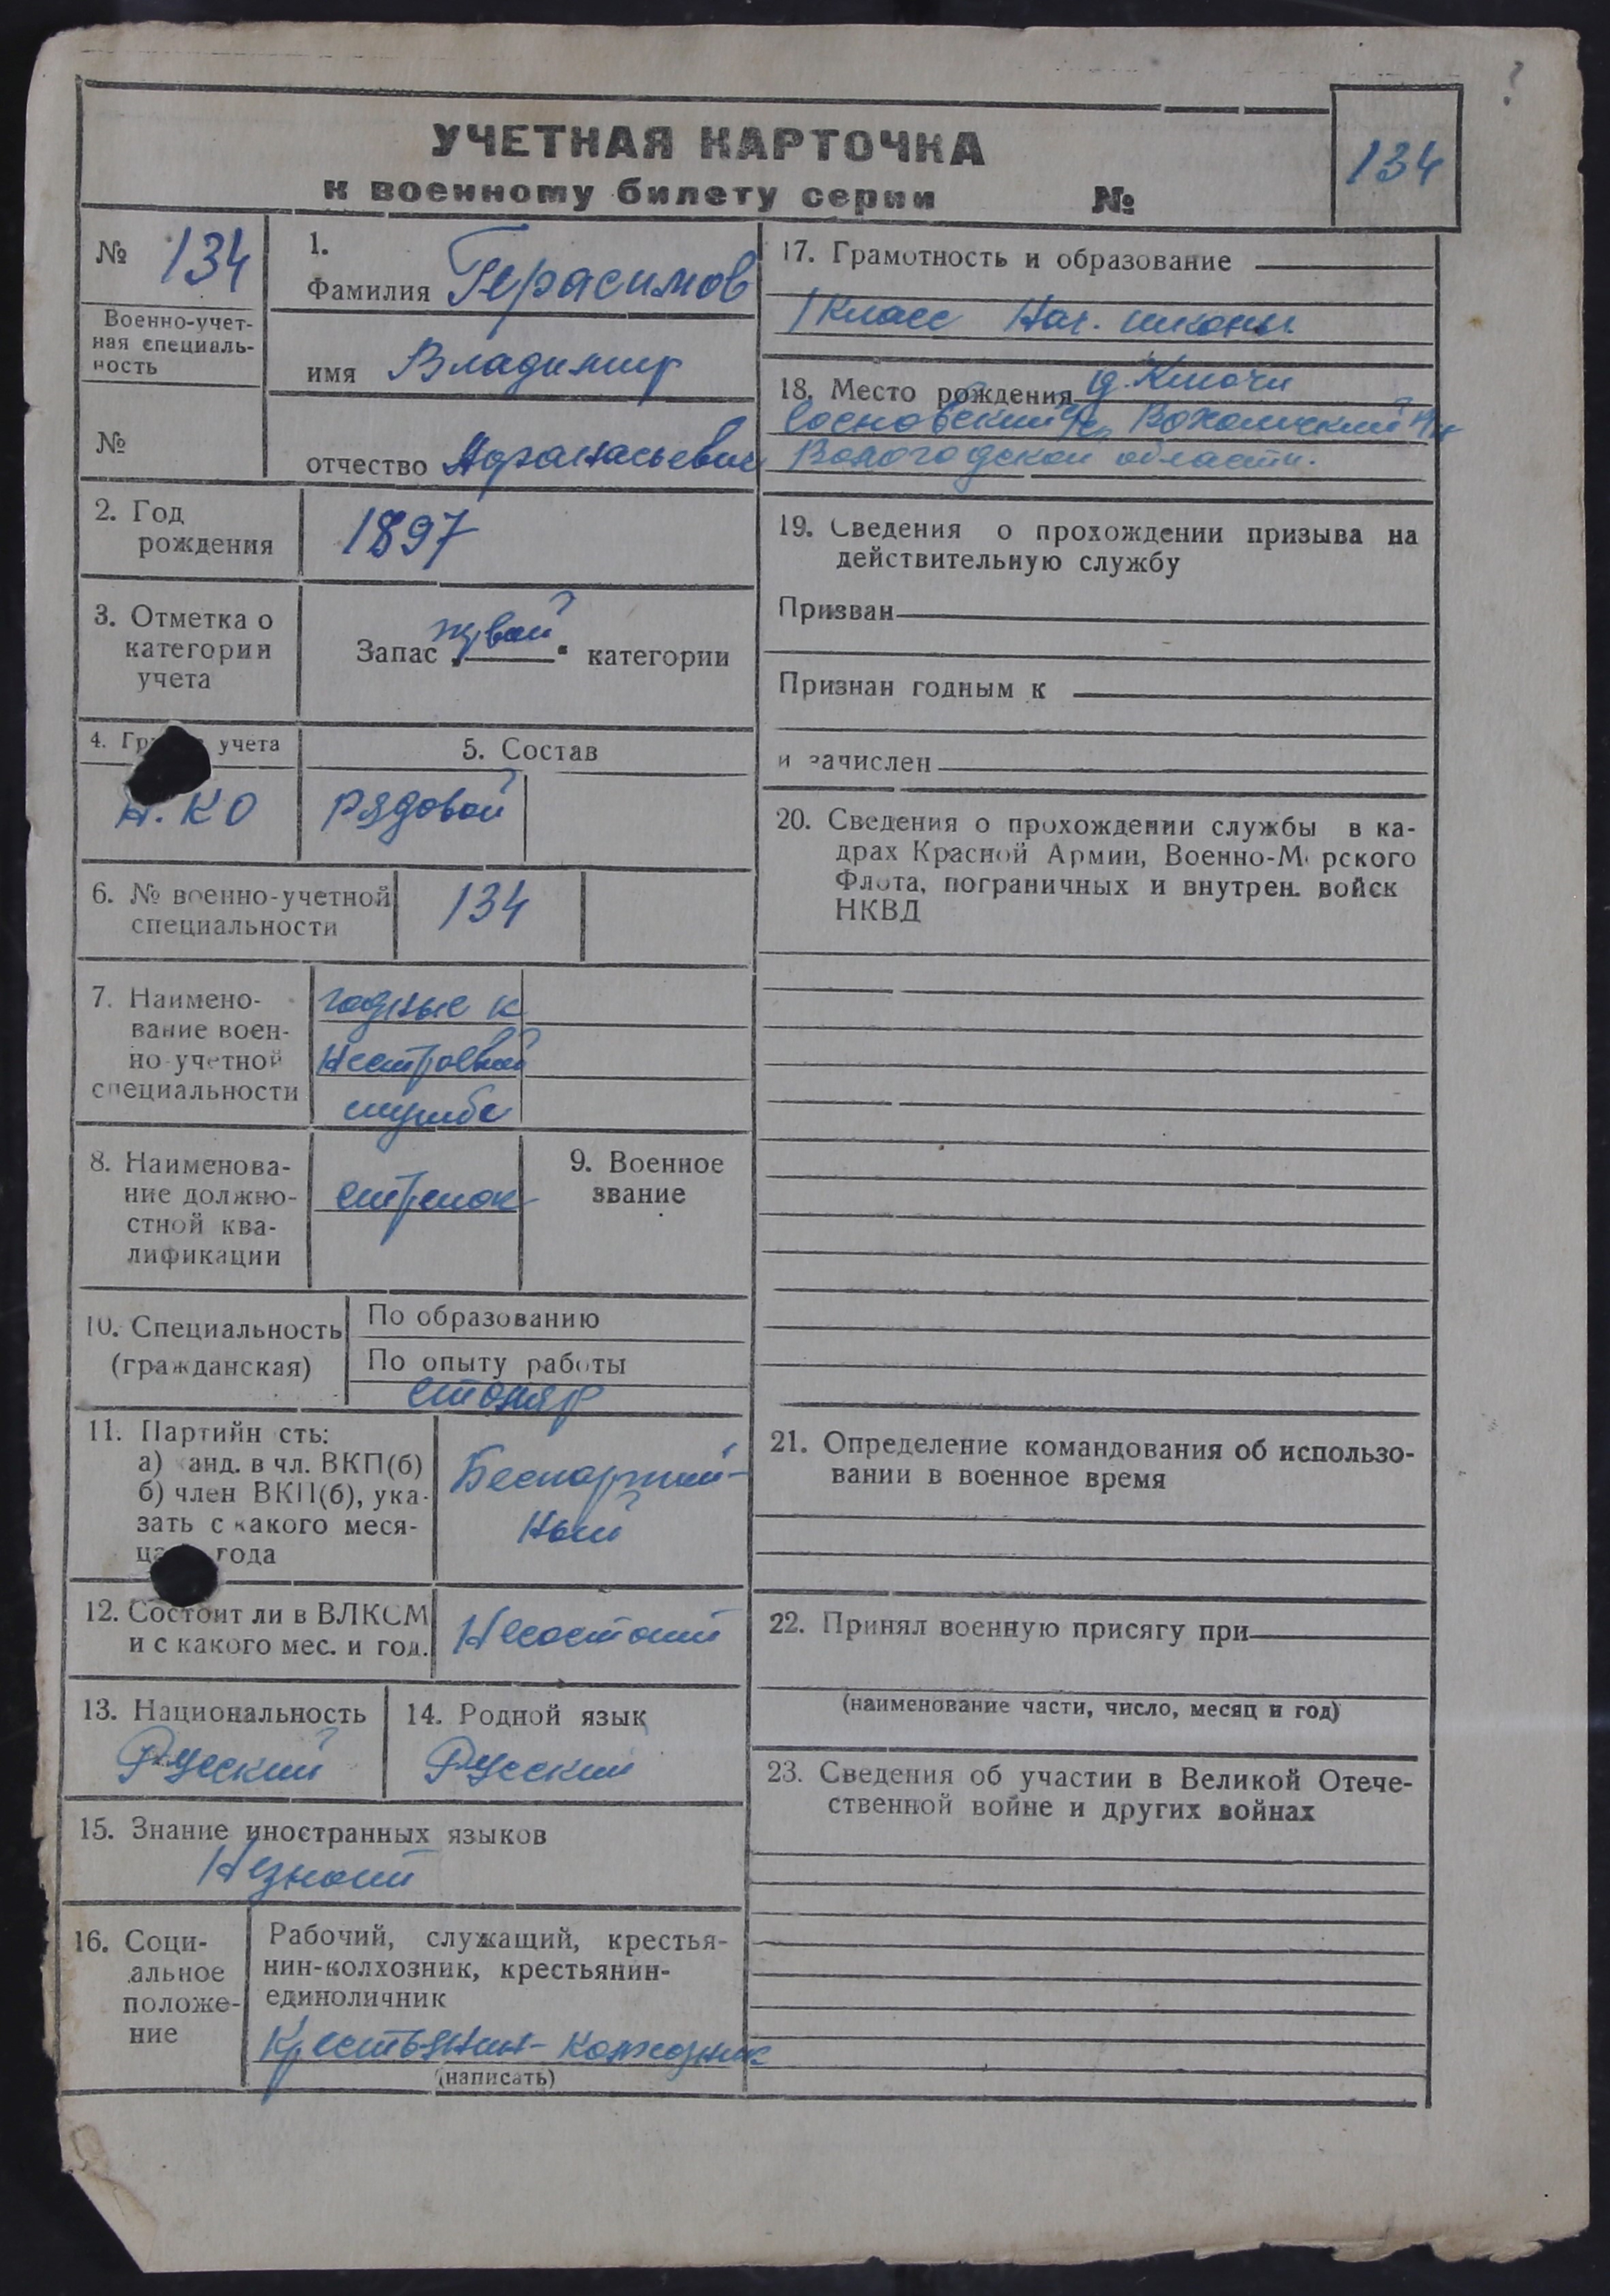 УЧЕТНАЯ КАРТОЧКА
к военному билету серии №
134
№ 134
Военно-учет-
ная специаль-
ность
№
1.
Фамилия Герасимов
имя Владимир
отчество Афанасьевич
2. Год
рождения
1897
3. Отметка о
категории
учета
Запас „первой“ категории
4. учета
КО
5. Состав
рядовой
6. № военно-учетной
специальности
134
7. Наимено-
вание воен-
но-учетной
специальности
годные к
нестроевой
службе
8. Наименова-
ние должно-
стной ква-
лификации
стрелок
9. Военное
звание
10. Специальность
(гражданская)
По образованию
По опыту работы
столяр
11. Партийн сть:
а) анд. в чл. ВКП(б)
б) член ВКП(б), ука-
зать с какого меся-
ца года
Беспартий-
ный
12. Состоит ли в ВЛКСМ
и с какого мес. и год.
Несостоит
13. Национальность
Русский
14. Родной язык
Русский
15. Знание иностранных языков
Незнает
16. Соци-
альное
положе-
ние
Рабочий, служащий, крестья-
нин-колхозник, крестьянин-
единоличник
Крестьянин-колхозник
(написать)
17. Грамотность и образование
1 класс Нач. школы
18. Место рождения д. Ключи
Сосновский с/с, Вохомский р-н
Вологодской области.
19. Сведения о прохождении призыва на
действительную службу
Призван
Признан годным к
и зачислен
20. Сведения о прохождении службы в ка-
драх Красной Армии, Военно-М рского
Флота, пограничных и внутрен. войск
НКВД
21. Определение командования об использо-
вании в военное время
22. Принял военную присягу при
(наименование части, число, месяц и год)
23. Сведения об участии в Великой Отече-
ственной войне и других войнах